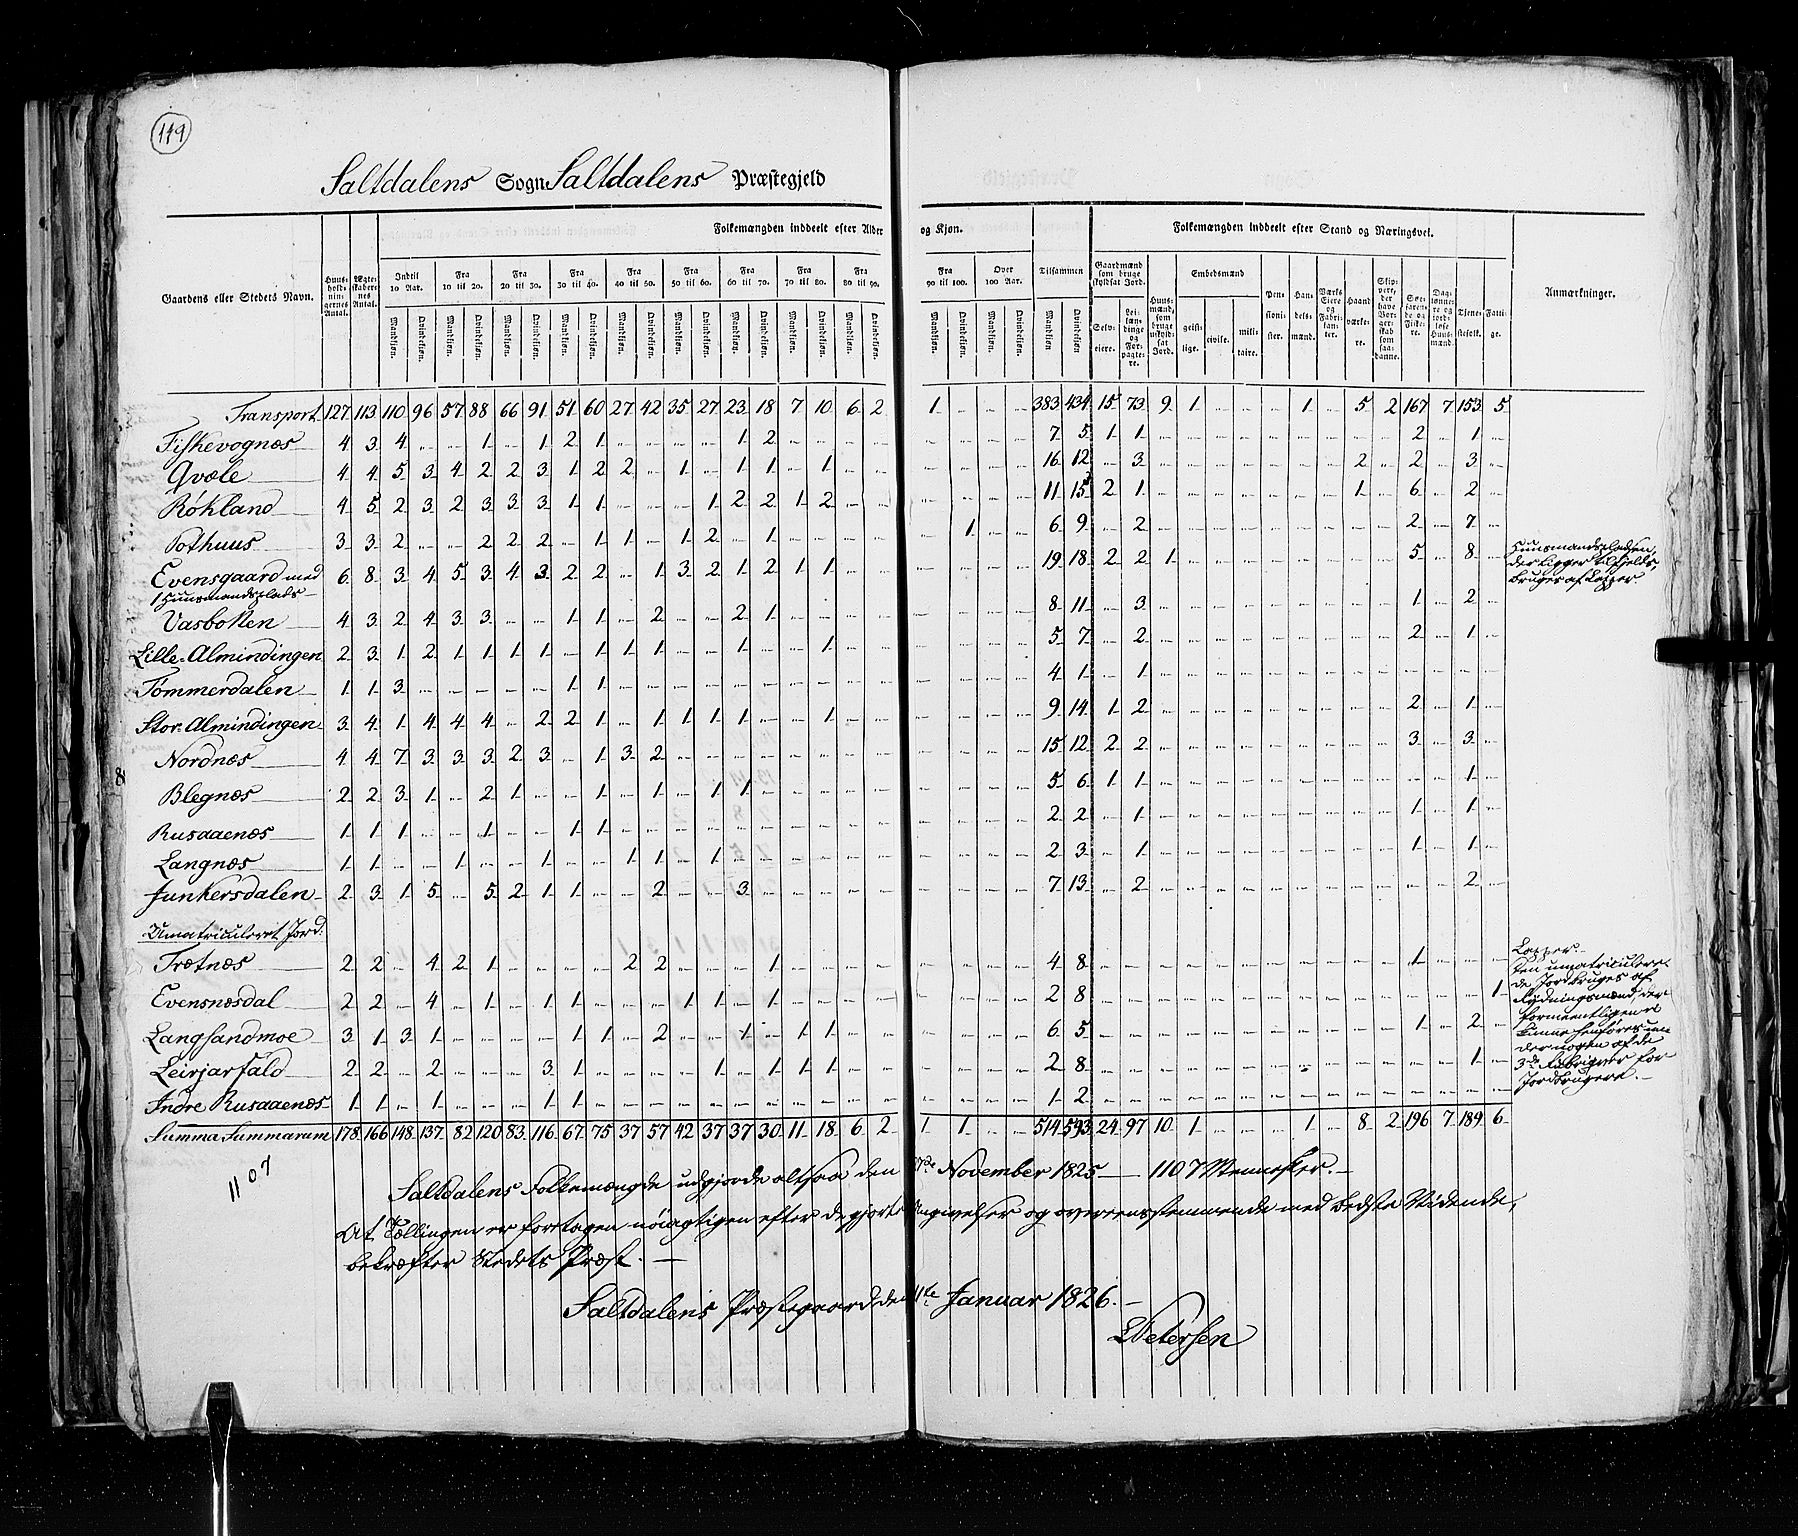 119
Saltdalens Sogn Saltdalens Præstegjeld
Gaardens eller Stedets Navn.
Huus-holdnin-gernes Antal.
Ægte-skaber-nes Antal.
Folkemængden inddeelt efter Alder og Kjøn.
Indtil 10 Aar. Fra 10 til 20. Fra 20 til 30. Fra 30 til 40. Fra 40 til 50. Fra 50 til 60. Fra 60 til 70. Fra 70 til 80. Fra 80 til 90. Fra 90 til 100. Over 100 Aar. Tilsammen
Mandkjøn. Qvindekjøn.
Folkemængden inddeelt efter Stand og Næringsvei.
Gaardmænd som bruge skyldsat Jord.
Selv-eiere. Lei-lændinge og For-pagtere.
Huus-mænd, som bruge uskyldsat Jord.
Embedsmænd
geist-lige. civile. mili-taire.
Pen-sioni-ster.
Han-dels-mænd.
Værks Eiere og Fabri-kan-ter.
Haand-værke-re.
Skip-pere, der have Bor-ger-skab som saa-danne.
Søe-faren-de og Fiske-re.
Dag-lønne-re og jord-løse Huus-mænd.
Tjene-stefolk.
Fatti-ge.
Anmærkninger.
Transport 127 113 110 96 57 88 66 91 51 60 27 42 35 27 23 18 7 10 6 2 1 383 434 15 73 9 1 1 5 2 167 7 153 5
Fiskevognæs 4 3 4 1 1 2 1 1 2 7 5 1 1 2 1
Qvæle 4 4 5 3 4 2 2 3 1 2 2 1 1 1 1 16 12 3 2 2 3
Røkland 4 5 2 3 2 3 3 3 1 1 1 2 2 1 2 11 15 2 1 1 6 2
Pothuus 3 3 2 2 2 2 1 1 1 2 1 1 6 9 2 2 7
Evensgaard med 6 8 3 4 5 3 4 3 2 2 1 3 2 1 2 1 1 19 18 2 2 1 5 8
1 Huusmandsplads
Huusmandspladsen,
der ligger tilfjelds,
bruges af Lapper
Vasbotten 4 3 2 4 3 3 1 1 2 2 1 8 11 3 1 2
Lille-Almindingen 2 3 1 2 1 1 1 1 1 1 1 1 1 5 7 2 2 1
Tömmerdalen 1 1 3 1 1 4 1 1
Stor-Almindingen 3 4 1 4 4 4 2 2 1 1 1 1 1 1 9 14 1 2 2 1
Nordnæs 4 4 7 3 3 3 2 3 1 3 2 15 12 2 2 3 3
Blegnæs 2 2 3 1 2 1 1 1 1 1 5 6 1 1 1
Rusaaenæs 1 1 1 1 1 1 2 2 1 1 1
Langnæs 1 1 1 1 1 1 1 2 3 1 1 1
Junkersdalen 2 3 1 5 5 2 1 1 2 3 7 13 2 2
Umatriculeret Jord.
Trætnæs 2 2 4 2 1 2 2 1 4 8 1
Evensnæsdal 2 2 4 1 1 1 1 1 1 2 8 1
Langsandmoe 3 1 3 1 1 1 2 1 1 1 6 5 1 2
Leirjarfald 2 2 2 3 1 1 1 1 1 2 8 1
Indre Rusaaenæs 1 1 1 1 1 1 2
Lapper.
Den umatriculere-
de Jord bruges af
Rydningsmænd, der
formeentligen ei
kunne henføres un
der nogen af de
3de Rubriqver for
Jordbrugere.
Summa Summarum 178 166 148 137 82 120 83 116 67 75 37 57 42 37 37 30 11 18 6 2 1 1 514 593 24 97 10 1 1 8 2 196 7 189 6
1107
Saltdalens Folkemængde udgjorde altsaa den 27de November 1825 — 1107 Mennesker.
At Tællingen er foretagen nöiagtigen efter de gjorte Angivelser og overeensstemmende med bedste Vidende,
bekræfter Stedets Præst.
Saltdalens Præstegaard den 11te Januar 1826.
Petersen